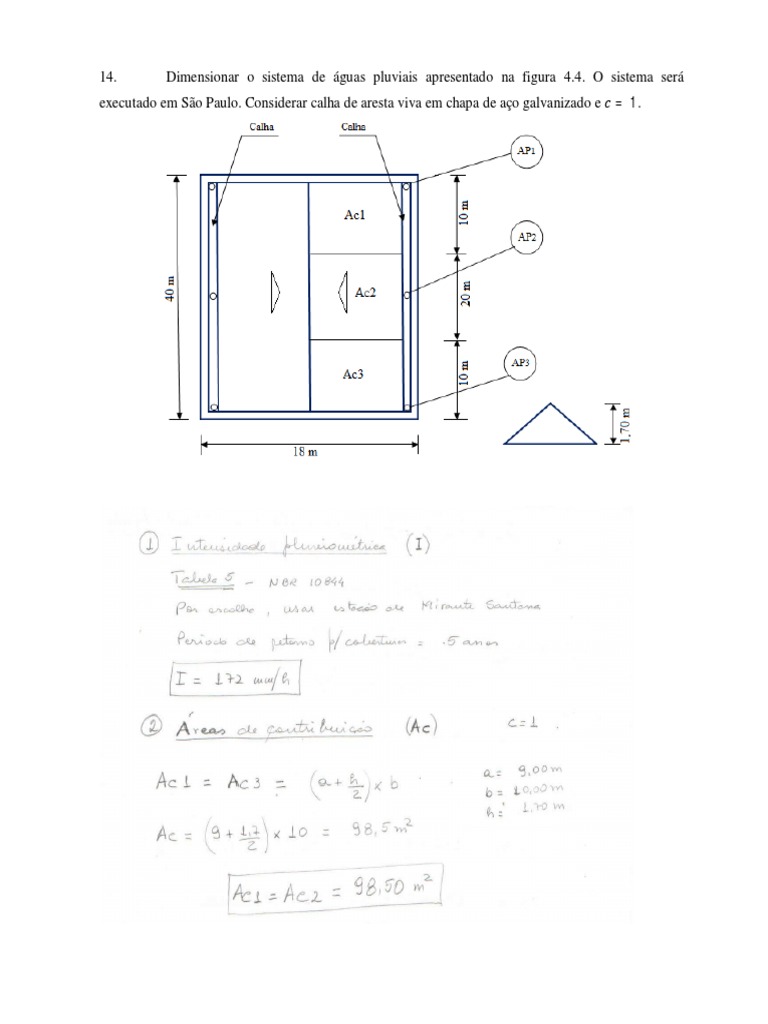 14. Dimensionar o sistema de águas pluviais apresentado na figura 4.4. O sistema será
executado em São Paulo. Considerar calha de aresta viva em chapa de aço galvanizado e c = 1.
Calha
Calha
AP1
Ac1
10 m
AP2
40 m
Ac2
20 m
AP3
Ac3
10 m
1,70 m
18 m
1 Intensidade pluviométrica (I)
Tabela 5 - NBR 10844
Por escolha, usar estação de Mirante Santana
Período de retorno p/ cobertura = 5 anos
I = 172 mm/h
2 Áreas de contribuição (Ac) c=1.
Ac1 = Ac3 = (a + h/2) x b
a= 9,00m
b= 10,00m
h= 1,70 m
Ac = (9 + 1,7/2) x 10 = 98,5 m²
Ac1 = Ac2 = 98,50 m²